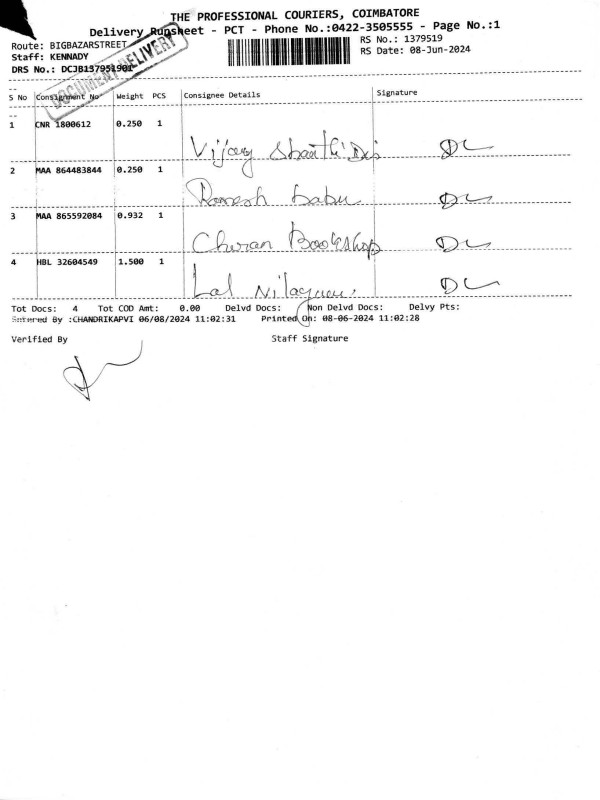 THE PROFESSIONAL COURIERS, COIMBATORE
Delivery Runsheet - PCT - Phone No.:0422-3505555 - Page No.:1
Route: BIGBAZARSTREET
RS No.: 1379519
Staff: KENNADY
RS Date: 08-Jun-2024
DRS No.: DCJB137951901
DOCUMENT DELIVERY
S No Consignment No Weight PCS Consignee Details Signature
1 CNR 1800612 0.250 1
Vijay
2 MAA 864483844 0.250 1
Ramesh babu
3 MAA 865592084 0.932 1
Charan Bookshop
4 HBL 32604549 1.500 1
Lal
Tot Docs: 4 Tot COD Amt: 0.00 Delvd Docs: Non Delvd Docs: Delvy Pts:
Entered By :CHANDRIKAPVI 06/08/2024 11:02:31 Printed On: 08-06-2024 11:02:28
Verified By Staff Signature